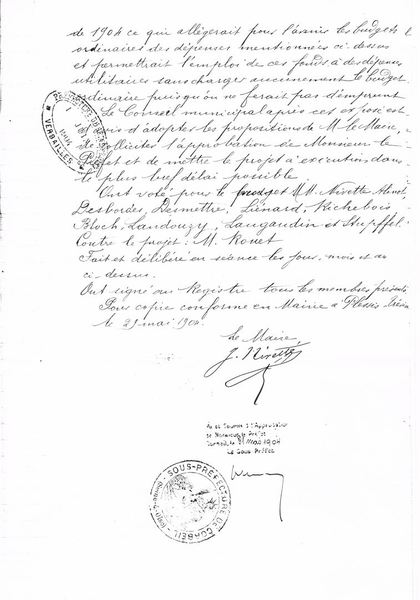 de 1904 ce qui allégerait pour l'avenir les budgets
ordinaires des dépenses mentionnées ci-dessus
et permettrait l'emploi de ces fonds à des dépenses
utilitaires sans charger aucunement le budget
ordinaire puisqu'on ne ferait pas d'emprunt
Le Conseil municipal après cet exposé est
d'avis d'adopter les propositions de M. le Maire,
de solliciter l'approbation de Monsieur le
Préfet et de mettre le projet à exécution dans
le plus bref délai possible
Ont voté pour le projet M.M. Nivette
Desbordes, Desmettre, Liénard, Richebois
Bloch, Landouzy, Laugaudin et Stupffel.
Contre le projet: M. Rouet
Fait et délibéré en séance les jour, mois et an
ci-dessus.
Ont signé au Registre tous les membres présents
Pour copie conforme en Mairie à Plessis
le 29 mai 1904.
Le Maire,
J. Nivette
VERSAILLES
Corbeil, le 31 Mai 1904
Le Sous Préfet
SOUS-PRÉFECTURE DE CORBEIL